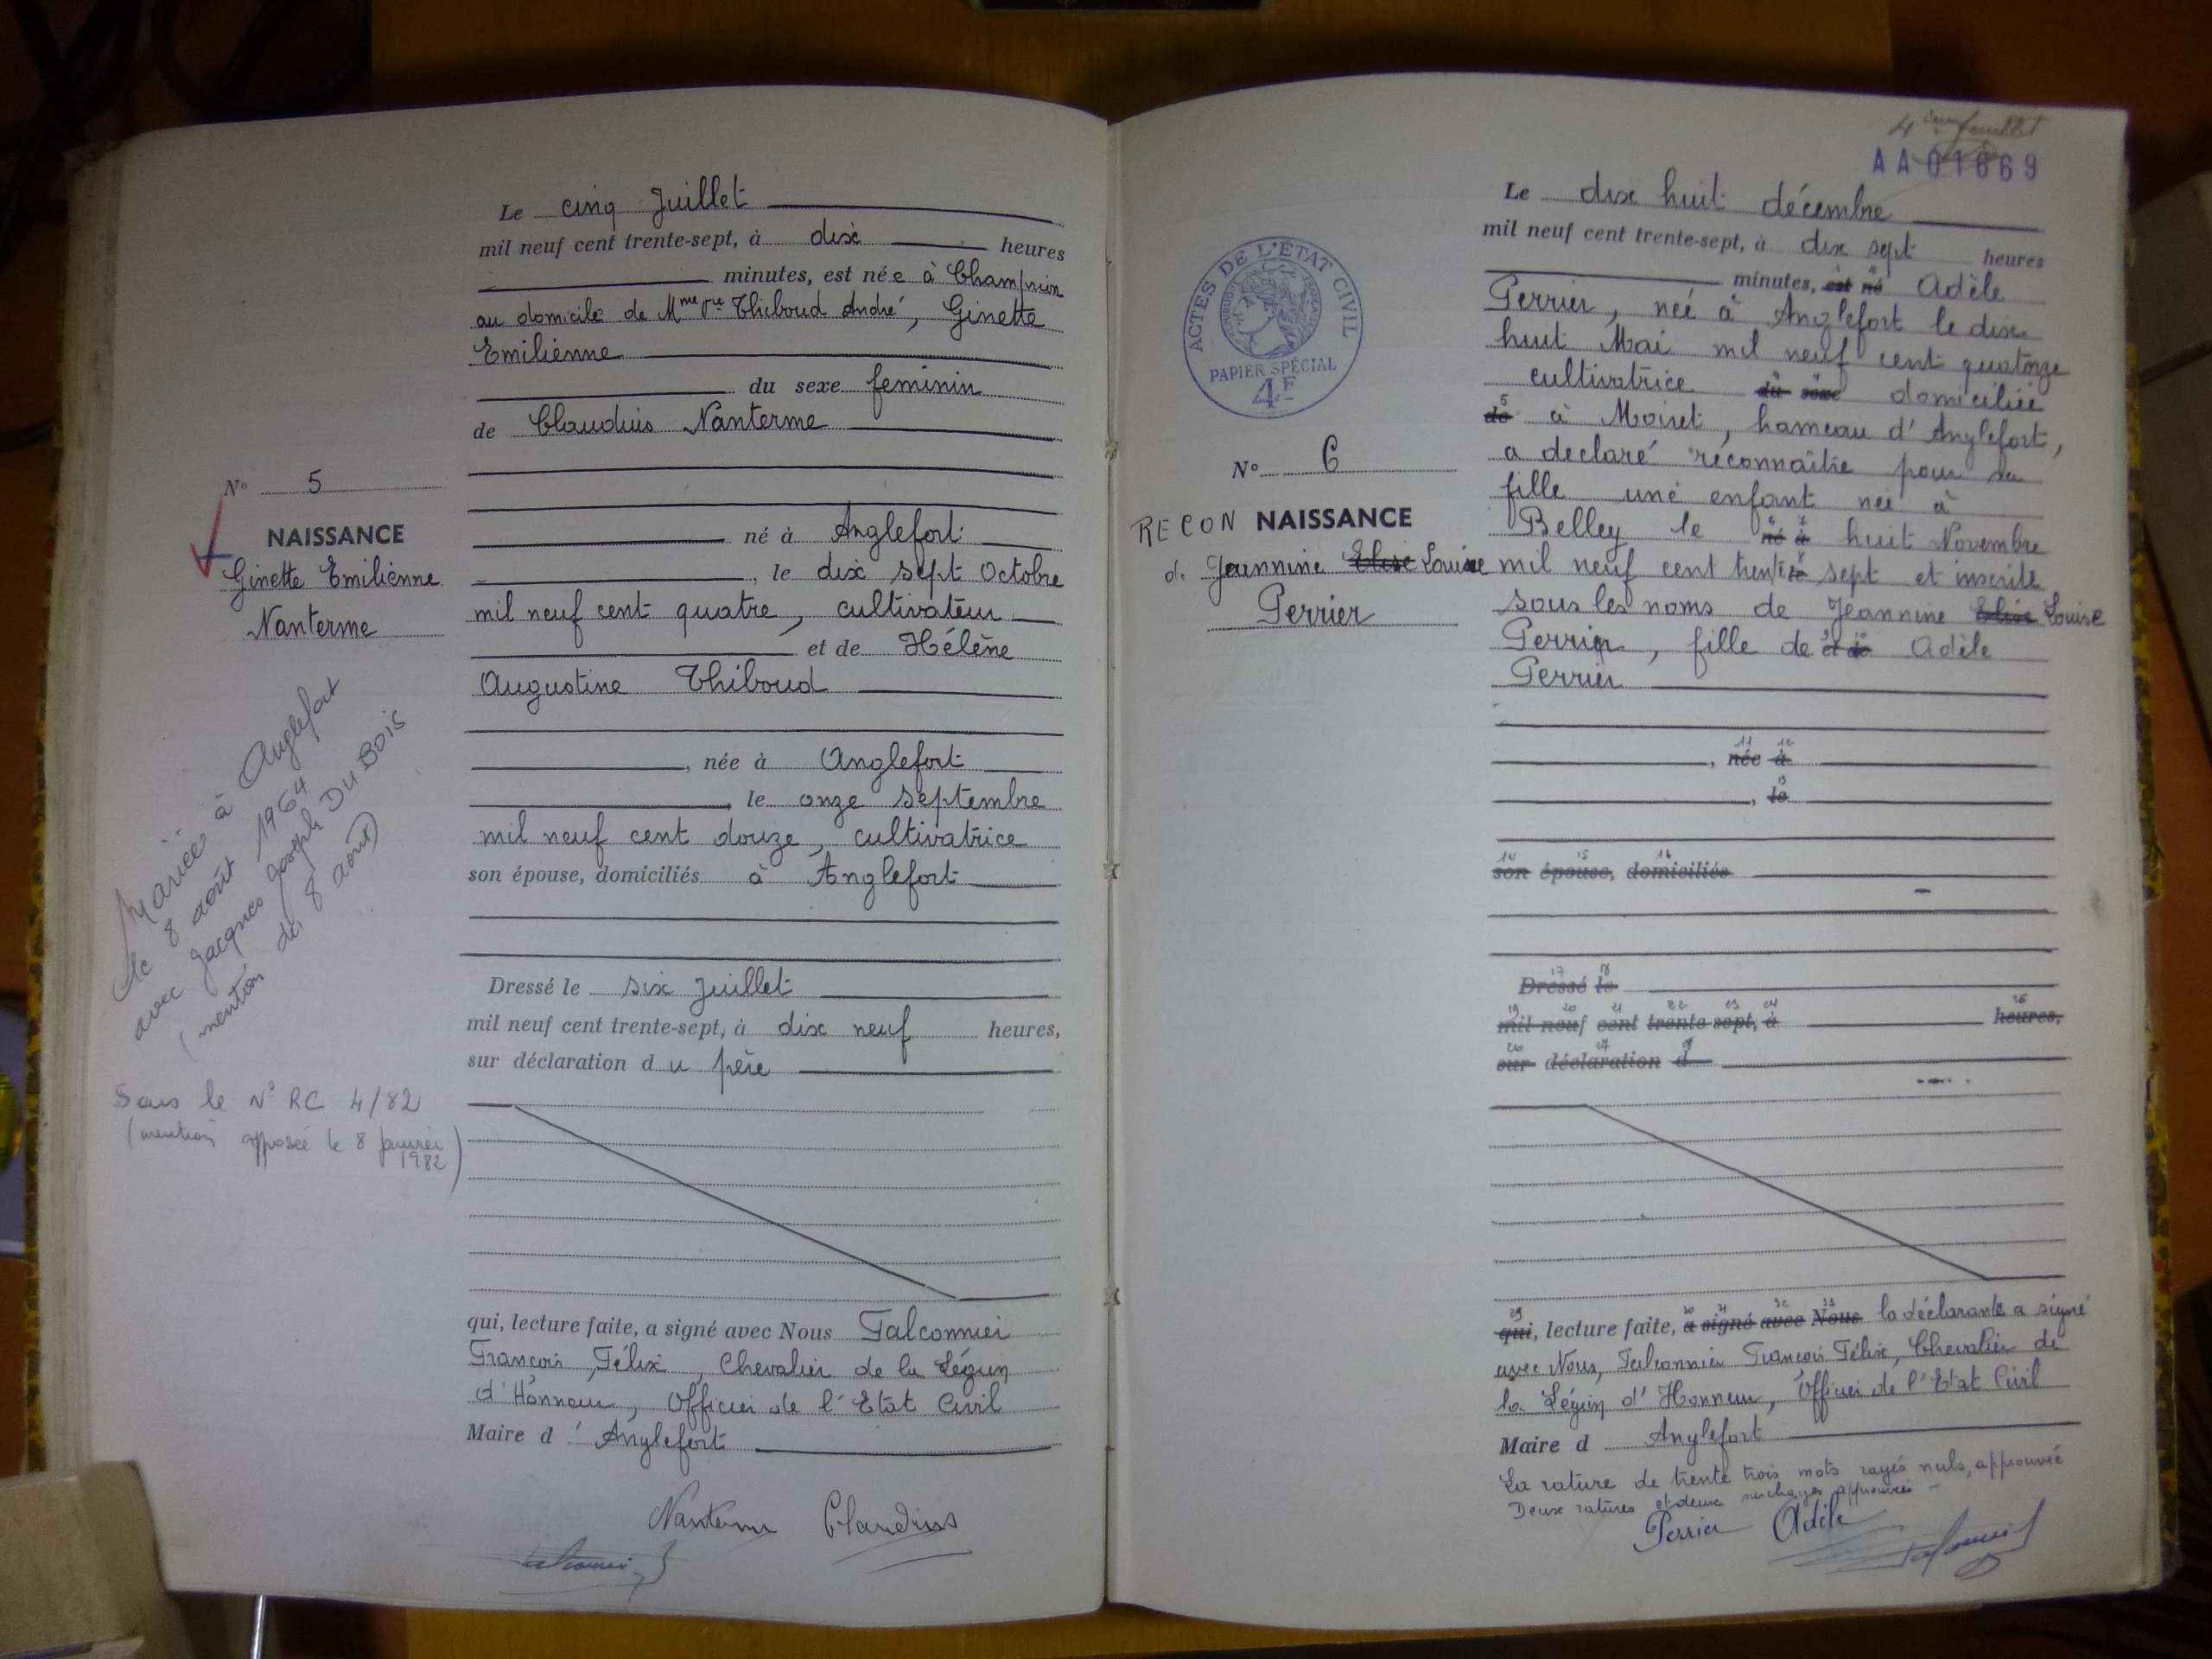 Le cinq Juillet
mil neuf cent trente-sept, à dix heures
minutes, est née à Champrion
au domicile de Mme Vve Thiboud André, Ginette
Emilienne
du sexe feminin
de Claudius Nanterme
né à Anglefort
, le dix sept Octobre
mil neuf cent quatre, cultivateur
et de Hélène
Augustine Thiboud
, née à Anglefort
, le onze Septembre
mil neuf cent douze, cultivatrice
son épouse, domiciliés à Anglefort
Dressé le six Juillet
mil neuf cent trente-sept, à dix neuf heures,
sur déclaration du père
qui, lecture faite, a signé avec Nous Falconnier
François, Félix, Chevalier de la Légion
d'Honneur, Officier de l'Etat Civil
Maire d'Anglefort
Nanterme Claudius
N° 5
NAISSANCE
Ginette Emilienne
Nanterme
Mariée à Anglefort
le 8 août 1964
avec Jacques Joseph DUBOIS
(mention du 8 août)
Sous le N° RC 4/82
(mention apposée le 8 Janvier
1982)
4ième feuillet
AA01669
ACTES DE L'ÉTAT CIVIL
RÉPUBLIQUE FRANÇAISE
PAPIER SPÉCIAL
4F
N° 6
RECON NAISSANCE
de Jeannine Elise Louise
Perrier
Le dix huit décembre
mil neuf cent trente-sept, à dix sept heures
minutes, est né Adèle
Perrier, neé à Anglefort le dix
huit Mai mil neuf cent quatorze
cultivatrice du sexe domiciliée
de à Moiret, hameau d'Anglefort,
a declaré reconnaître pour sa
fille une enfant née à
Belley le né à huit Novembre
mil neuf cent trente le sept et inscrite
sous les noms de Jeannine Elise Louise
Perrier, fille de et de Adèle
Perrier
, née à
, le
son épouse, domiciliés
Dressé le
mil neuf cent trente-sept, à heures,
sur déclaration d
qui, lecture faite, a signé avec Nous la déclarante a signé
avec Nous, Falconnier François Félix, Chevalier de
la Légion d'Honneur, Officier de l'Etat Civil
Maire d Anglefort
La rature de trente trois mots rayés nuls, approuvée
Deux ratures et deux surcharges approuvées
Perrier Adèle
Falconnier